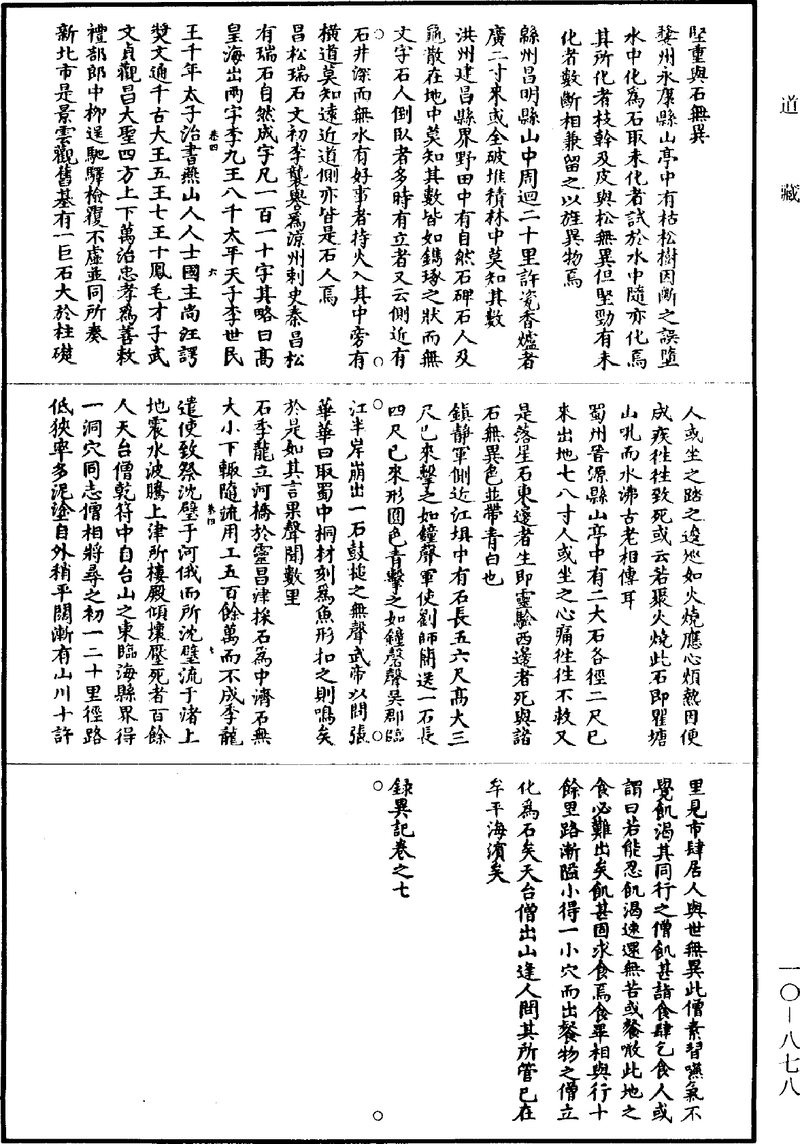 道藏
堅重與石無異
婺州永康縣山亭中有枯松樹因斷之誤墮
水中化為石取未化者試於水中隨亦化焉
其所化者枝幹及皮與松無異但堅勁有未
化者數斷相兼留之以旌異物焉
緜州昌明縣山中周迴二十里許瓷香爐者
廣二寸來或全破堆積林中莫知其數
洪州建昌縣界野田中有自然石碑石人及
龜散在地中莫知其數皆如鐫琢之狀而無
文字石人倒臥者多時有立者又云側近有
石井深而無水有好事者持火入其中旁有
橫道莫知遠近道側亦皆是石人焉
昌松瑞石文初李襲譽為涼州刺史奏昌松
有瑞石自然成字凡一百一十字其略曰高
皇海出兩字李九王八千太平天子李世民
卷四 六
王千年太子治書燕山人人士國主尚汪諤
獎文通千古大王五王七王十鳳毛才子武
文貞觀昌大聖四方上下萬治忠孝為善敕
禮部郎中柳逞馳驛檢覆不虛並同所奏
新北市是景雲觀舊基有一巨石大於柱礎
人或坐之踏之逡巡如火燒應心煩熱因便
成疾往往致死或云若聚火燒此石即瞿塘
山吼而水沸古老相傳耳
蜀州晉源縣山亭中有二大石各徑二尺已
來出地七八寸人或坐之心痛往往不救又
是落星石東邊者生即靈驗西邊者死與諸
石無異色並帶青白也
鎮靜軍側近江埧中有石長五六尺高大三
尺已來擊之如鐘聲軍使劉師簡送一石長
四尺已來形圓色青擊之如鐘磬聲吳郡臨
江半岸崩出一石鼓搥之無聲武帝以問張
華華曰取蜀中桐材刻為魚形扣之則鳴矣
於是如其言果聲聞數里
石季龍立河橋於靈昌津採石為中濟石無
大小下輒隨流用工五百餘萬而不成季龍
卷四 七
遣使致祭沈璧于河俄而所沈璧流于渚上
地震水波騰上津所樓殿傾壞壓死者百餘
人天台僧乾符中自台山之東臨海縣界得
一洞穴同志僧相將尋之初一二十里徑路
低狹率多泥塗自外稍平闊漸有山川十許
里見市肆居人與世無異此僧素習嚥氣不
覺飢渴其同行之僧飢甚詣食肆乞食人或
謂曰若能忍飢渴速還無苦或餐噉此地之
食必難出矣飢甚固求食焉食畢相與行十
餘里路漸隘小得一小穴而出餐物之僧立
化為石矣天台僧出山逢人問其所管已在
牟平海濱矣
錄異記卷之七
一〇-八七八